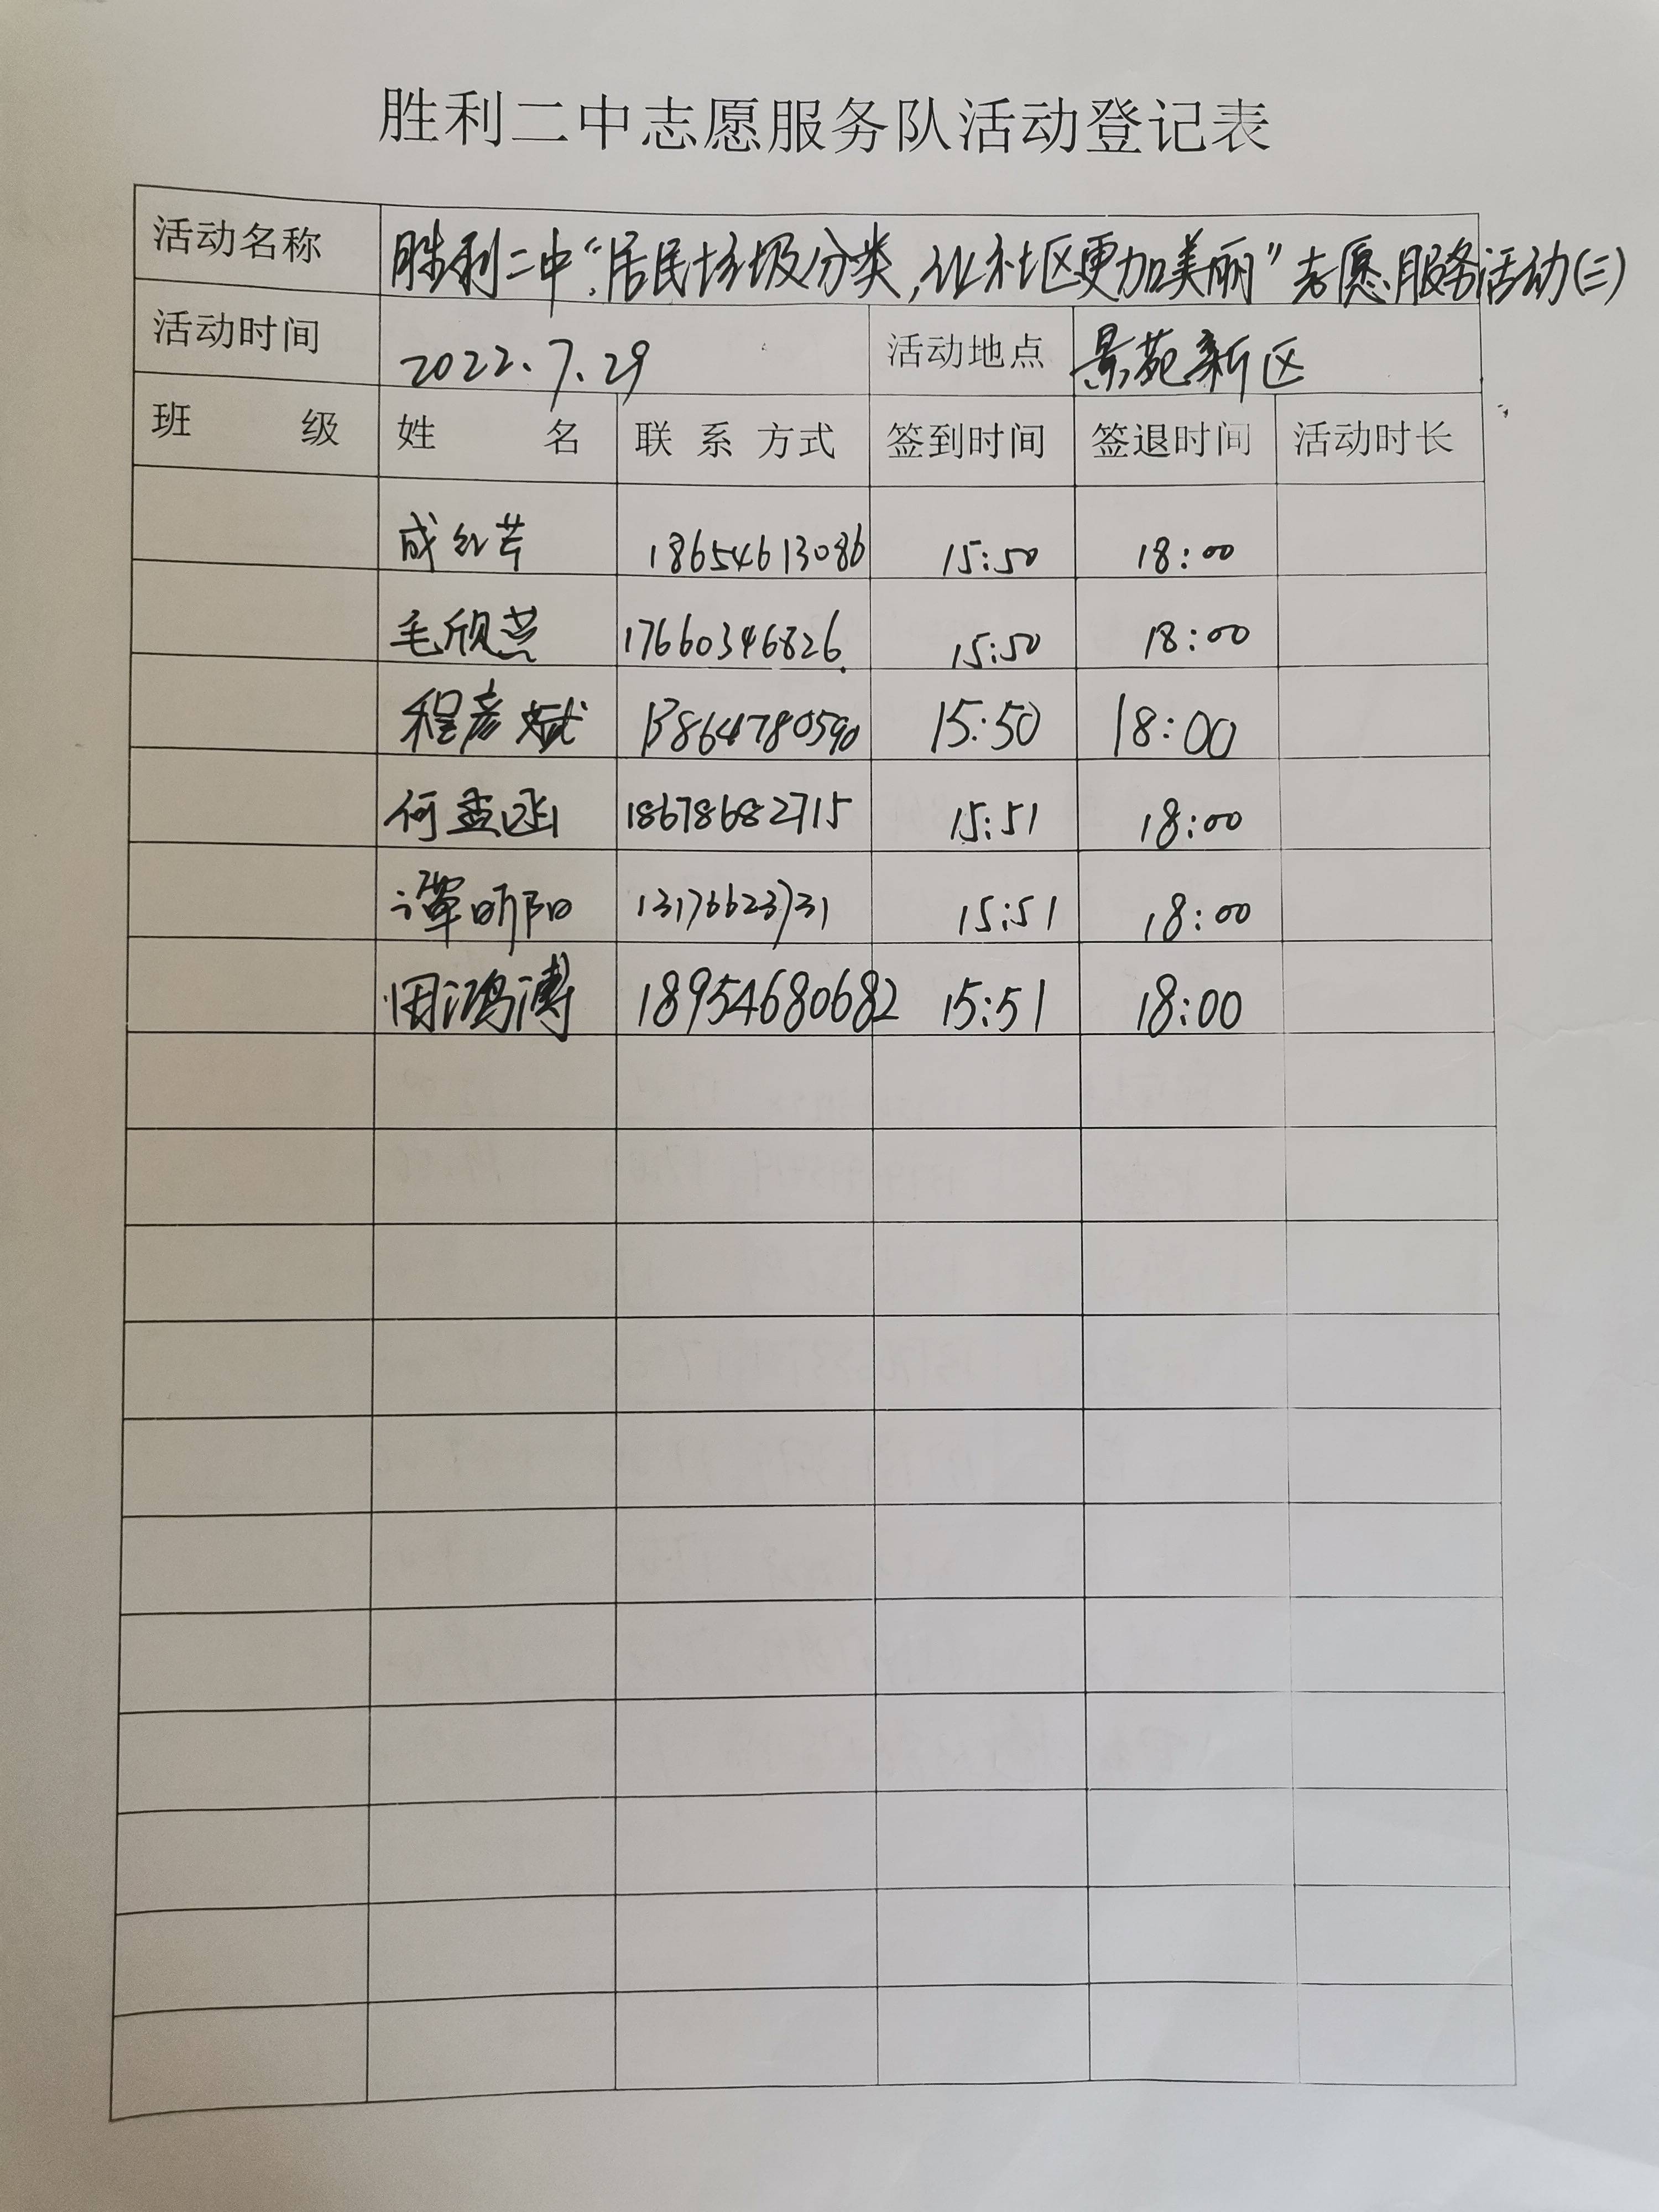 胜利二中志愿服务队活动登记表
活动名称 胜利二中“居民垃圾分类,让社区更加美丽”志愿服务活动(三)
活动时间 2022.7.29 活动地点 景苑新区
班 级 姓 名 联系方式 签到时间 签退时间 活动时长
成红芹 18654613086 15:50 18:00
毛欣燕 17660346826 15:50 18:00
程彦斌 13864780590 15:50 18:00
何孟函 18678682715 15:51 18:00
谭昕阳 13176623731 15:51 18:00
田鸿涛 18954680682 15:51 18:00